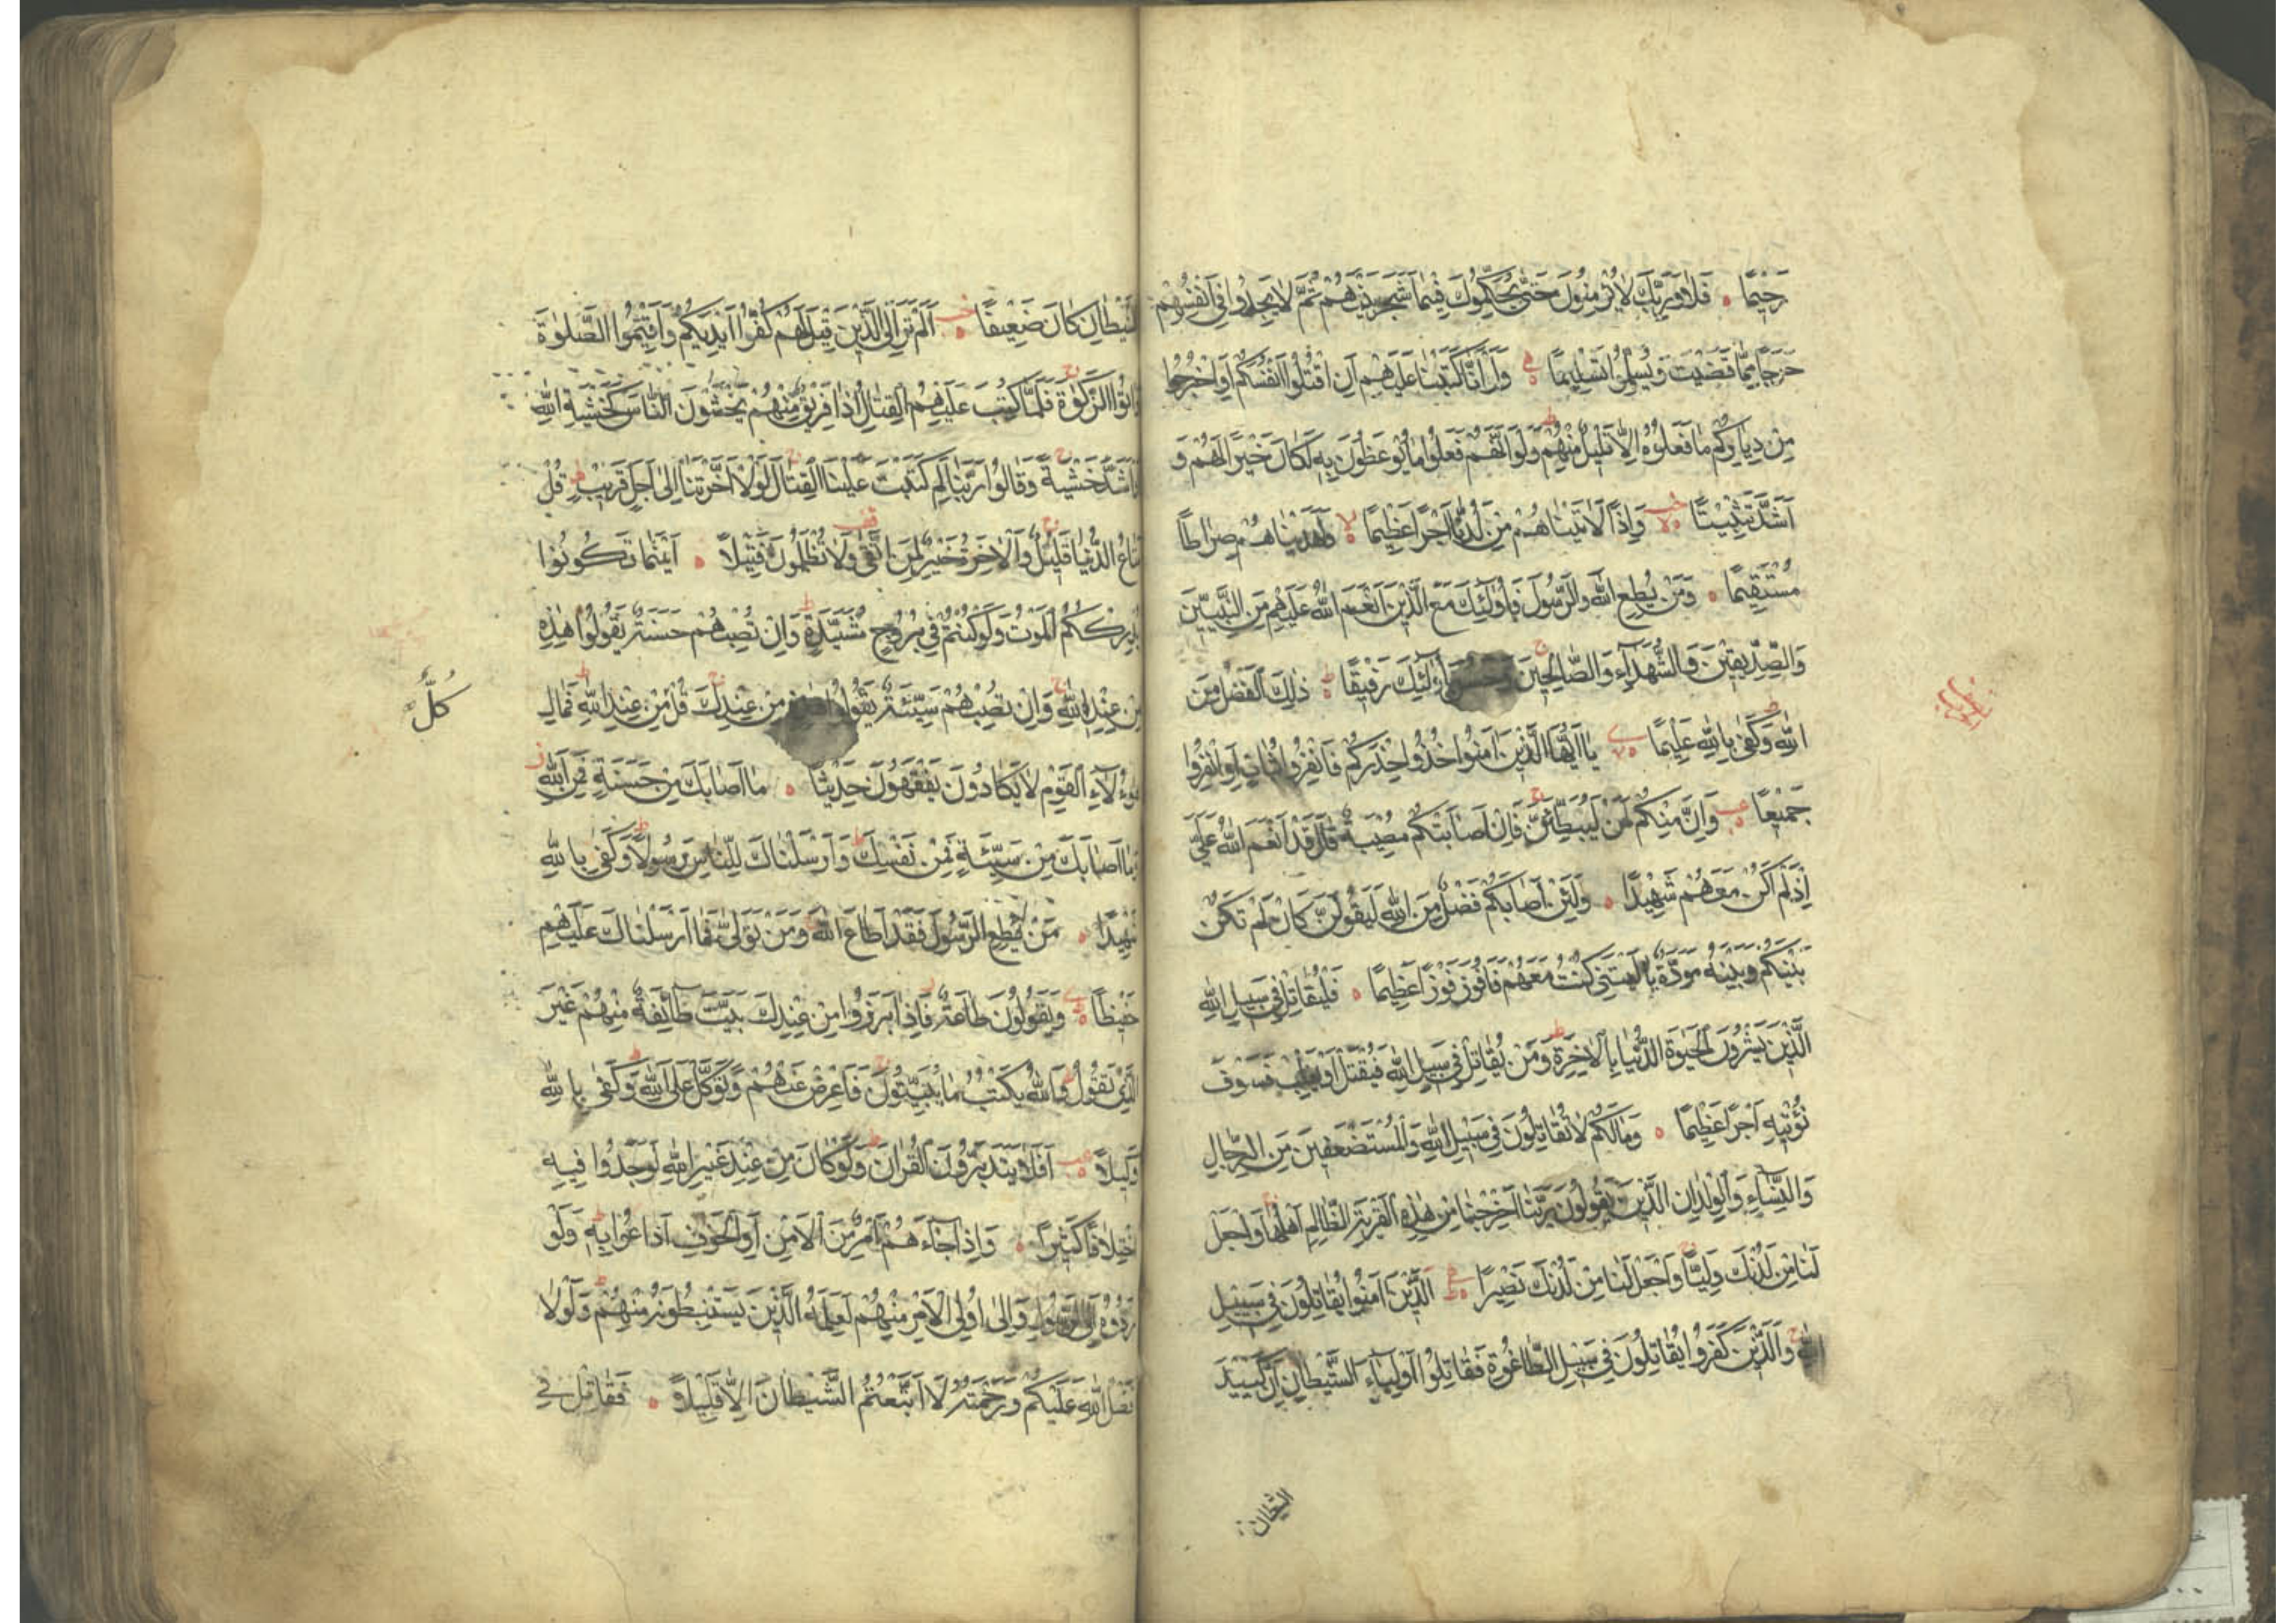 رَحِيمًا فَلَا وَرَبِّكَ لَا يُؤْمِنُونَ حَتَّى يُحَكِّمُوكَ فِيمَا شَجَرَ بَيْنَهُمْ ثُمَّ لَا يَجِدُوا فِي أَنْفُسِهِمْ
حَرَجًا مِمَّا قَضَيْتَ وَيُسَلِّمُوا تَسْلِيمًا وَلَوْ أَنَّا كَتَبْنَا عَلَيْهِمْ أَنِ اقْتُلُوا أَنْفُسَكُمْ أَوِ اخْرُجُوا
مِنْ دِيَارِكُمْ مَا فَعَلُوهُ إِلَّا قَلِيلٌ مِنْهُمْ وَلَوْ أَنَّهُمْ فَعَلُوا مَا يُوعَظُونَ بِهِ لَكَانَ خَيْرًا لَهُمْ وَ
أَشَدَّ تَثْبِيتًا وَإِذًا لَآتَيْنَاهُمْ مِنْ لَدُنَّا أَجْرًا عَظِيمًا وَلَهَدَيْنَاهُمْ صِرَاطًا
مُسْتَقِيمًا وَمَنْ يُطِعِ اللهَ وَالرَّسُولَ فَأُولَئِكَ مَعَ الَّذِينَ أَنْعَمَ اللهُ عَلَيْهِمْ مِنَ النَّبِيِّينَ
وَالصِّدِّيقِينَ وَالشُّهَدَاءِ وَالصَّالِحِينَ وَحَسُنَ أُولَئِكَ رَفِيقًا ذَلِكَ الْفَضْلُ مِنَ
اللهِ وَكَفَى بِاللهِ عَلِيمًا يَا أَيُّهَا الَّذِينَ آمَنُوا خُذُوا حِذْرَكُمْ فَانْفِرُوا ثُبَاتٍ أَوِ انْفِرُوا
جَمِيعًا وَإِنَّ مِنْكُمْ لَمَنْ لَيُبَطِّئَنَّ فَإِنْ أَصَابَتْكُمْ مُصِيبَةٌ قَالَ قَدْ أَنْعَمَ اللهُ عَلَيَّ
إِذْ لَمْ أَكُنْ مَعَهُمْ شَهِيدًا وَلَئِنْ أَصَابَكُمْ فَضْلٌ مِنَ اللهِ لَيَقُولَنَّ كَأَنْ لَمْ تَكُنْ
بَيْنَكُمْ وَبَيْنَهُ مَوَدَّةٌ يَا لَيْتَنِي كُنْتُ مَعَهُمْ فَأَفُوزَ فَوْزًا عَظِيمًا فَلْيُقَاتِلْ فِي سَبِيلِ اللهِ
الَّذِينَ يَشْرُونَ الْحَيَوةَ الدُّنْيَا بِالْآخِرَةِ وَمَنْ يُقَاتِلْ فِي سَبِيلِ اللهِ فَيُقْتَلْ أَوْ يَغْلِبْ فَسَوْفَ
نُؤْتِيهِ أَجْرًا عَظِيمًا وَمَا لَكُمْ لَا تُقَاتِلُونَ فِي سَبِيلِ اللهِ وَالْمُسْتَضْعَفِينَ مِنَ الرِّجَالِ
وَالنِّسَاءِ وَالْوِلْدَانِ الَّذِينَ يَقُولُونَ رَبَّنَا أَخْرِجْنَا مِنْ هَذِهِ الْقَرْيَةِ الظَّالِمِ أَهْلُهَا وَاجْعَلْ
لَنَا مِنْ لَدُنْكَ وَلِيًّا وَاجْعَلْ لَنَا مِنْ لَدُنْكَ نَصِيرًا الَّذِينَ آمَنُوا يُقَاتِلُونَ فِي سَبِيلِ
اللهِ وَالَّذِينَ كَفَرُوا يُقَاتِلُونَ فِي سَبِيلِ الطَّاغُوتِ فَقَاتِلُوا أَوْلِيَاءَ الشَّيْطَانِ إِنَّ كَيْدَ
الشيطان
الشَّيْطَانِ كَانَ ضَعِيفًا أَلَمْ تَرَ إِلَى الَّذِينَ قِيلَ لَهُمْ كُفُّوا أَيْدِيَكُمْ وَأَقِيمُوا الصَّلَوةَ
وَآتُوا الزَّكَوةَ فَلَمَّا كُتِبَ عَلَيْهِمُ الْقِتَالُ إِذَا فَرِيقٌ مِنْهُمْ يَخْشَوْنَ النَّاسَ كَخَشْيَةِ اللهِ
أَوْ أَشَدَّ خَشْيَةً وَقَالُوا رَبَّنَا لِمَ كَتَبْتَ عَلَيْنَا الْقِتَالَ لَوْلَا أَخَّرْتَنَا إِلَى أَجَلٍ قَرِيبٍ قُلْ
مَتَاعُ الدُّنْيَا قَلِيلٌ وَالْآخِرَةُ خَيْرٌ لِمَنِ اتَّقَى وَلَا تُظْلَمُونَ فَتِيلًا أَيْنَمَا تَكُونُوا
يُدْرِكْكُمُ الْمَوْتُ وَلَوْ كُنْتُمْ فِي بُرُوجٍ مُشَيَّدَةٍ وَإِنْ تُصِبْهُمْ حَسَنَةٌ يَقُولُوا هَذِهِ
مِنْ عِنْدِ اللهِ وَإِنْ تُصِبْهُمْ سَيِّئَةٌ يَقُولُوا هَذِهِ مِنْ عِنْدِكَ قُلْ مِنْ عِنْدِ اللهِ فَمَالِ
كُلٌّ
هَؤُلَاءِ الْقَوْمِ لَا يَكَادُونَ يَفْقَهُونَ حَدِيثًا مَا أَصَابَكَ مِنْ حَسَنَةٍ فَمِنَ اللهِ
وَمَا أَصَابَكَ مِنْ سَيِّئَةٍ فَمِنْ نَفْسِكَ وَأَرْسَلْنَاكَ لِلنَّاسِ رَسُولًا وَكَفَى بِاللهِ
شَهِيدًا مَنْ يُطِعِ الرَّسُولَ فَقَدْ أَطَاعَ اللهَ وَمَنْ تَوَلَّى فَمَا أَرْسَلْنَاكَ عَلَيْهِمْ
حَفِيظًا وَيَقُولُونَ طَاعَةٌ فَإِذَا بَرَزُوا مِنْ عِنْدِكَ بَيَّتَ طَائِفَةٌ مِنْهُمْ غَيْرَ
الَّذِي تَقُولُ وَاللهُ يَكْتُبُ مَا يُبَيِّتُونَ فَأَعْرِضْ عَنْهُمْ وَتَوَكَّلْ عَلَى اللهِ وَكَفَى بِاللهِ
وَكِيلًا أَفَلَا يَتَدَبَّرُونَ الْقُرْآنَ وَلَوْ كَانَ مِنْ عِنْدِ غَيْرِ اللهِ لَوَجَدُوا فِيهِ
اخْتِلَافًا كَثِيرًا وَإِذَا جَاءَهُمْ أَمْرٌ مِنَ الْأَمْنِ أَوِ الْخَوْفِ أَذَاعُوا بِهِ وَلَوْ
رَدُّوهُ إِلَى الرَّسُولِ وَإِلَى أُولِي الْأَمْرِ مِنْهُمْ لَعَلِمَهُ الَّذِينَ يَسْتَنْبِطُونَهُ مِنْهُمْ وَلَوْلَا
فَضْلُ اللهِ عَلَيْكُمْ وَرَحْمَتُهُ لَاتَّبَعْتُمُ الشَّيْطَانَ إِلَّا قَلِيلًا فَقَاتِلْ فِي